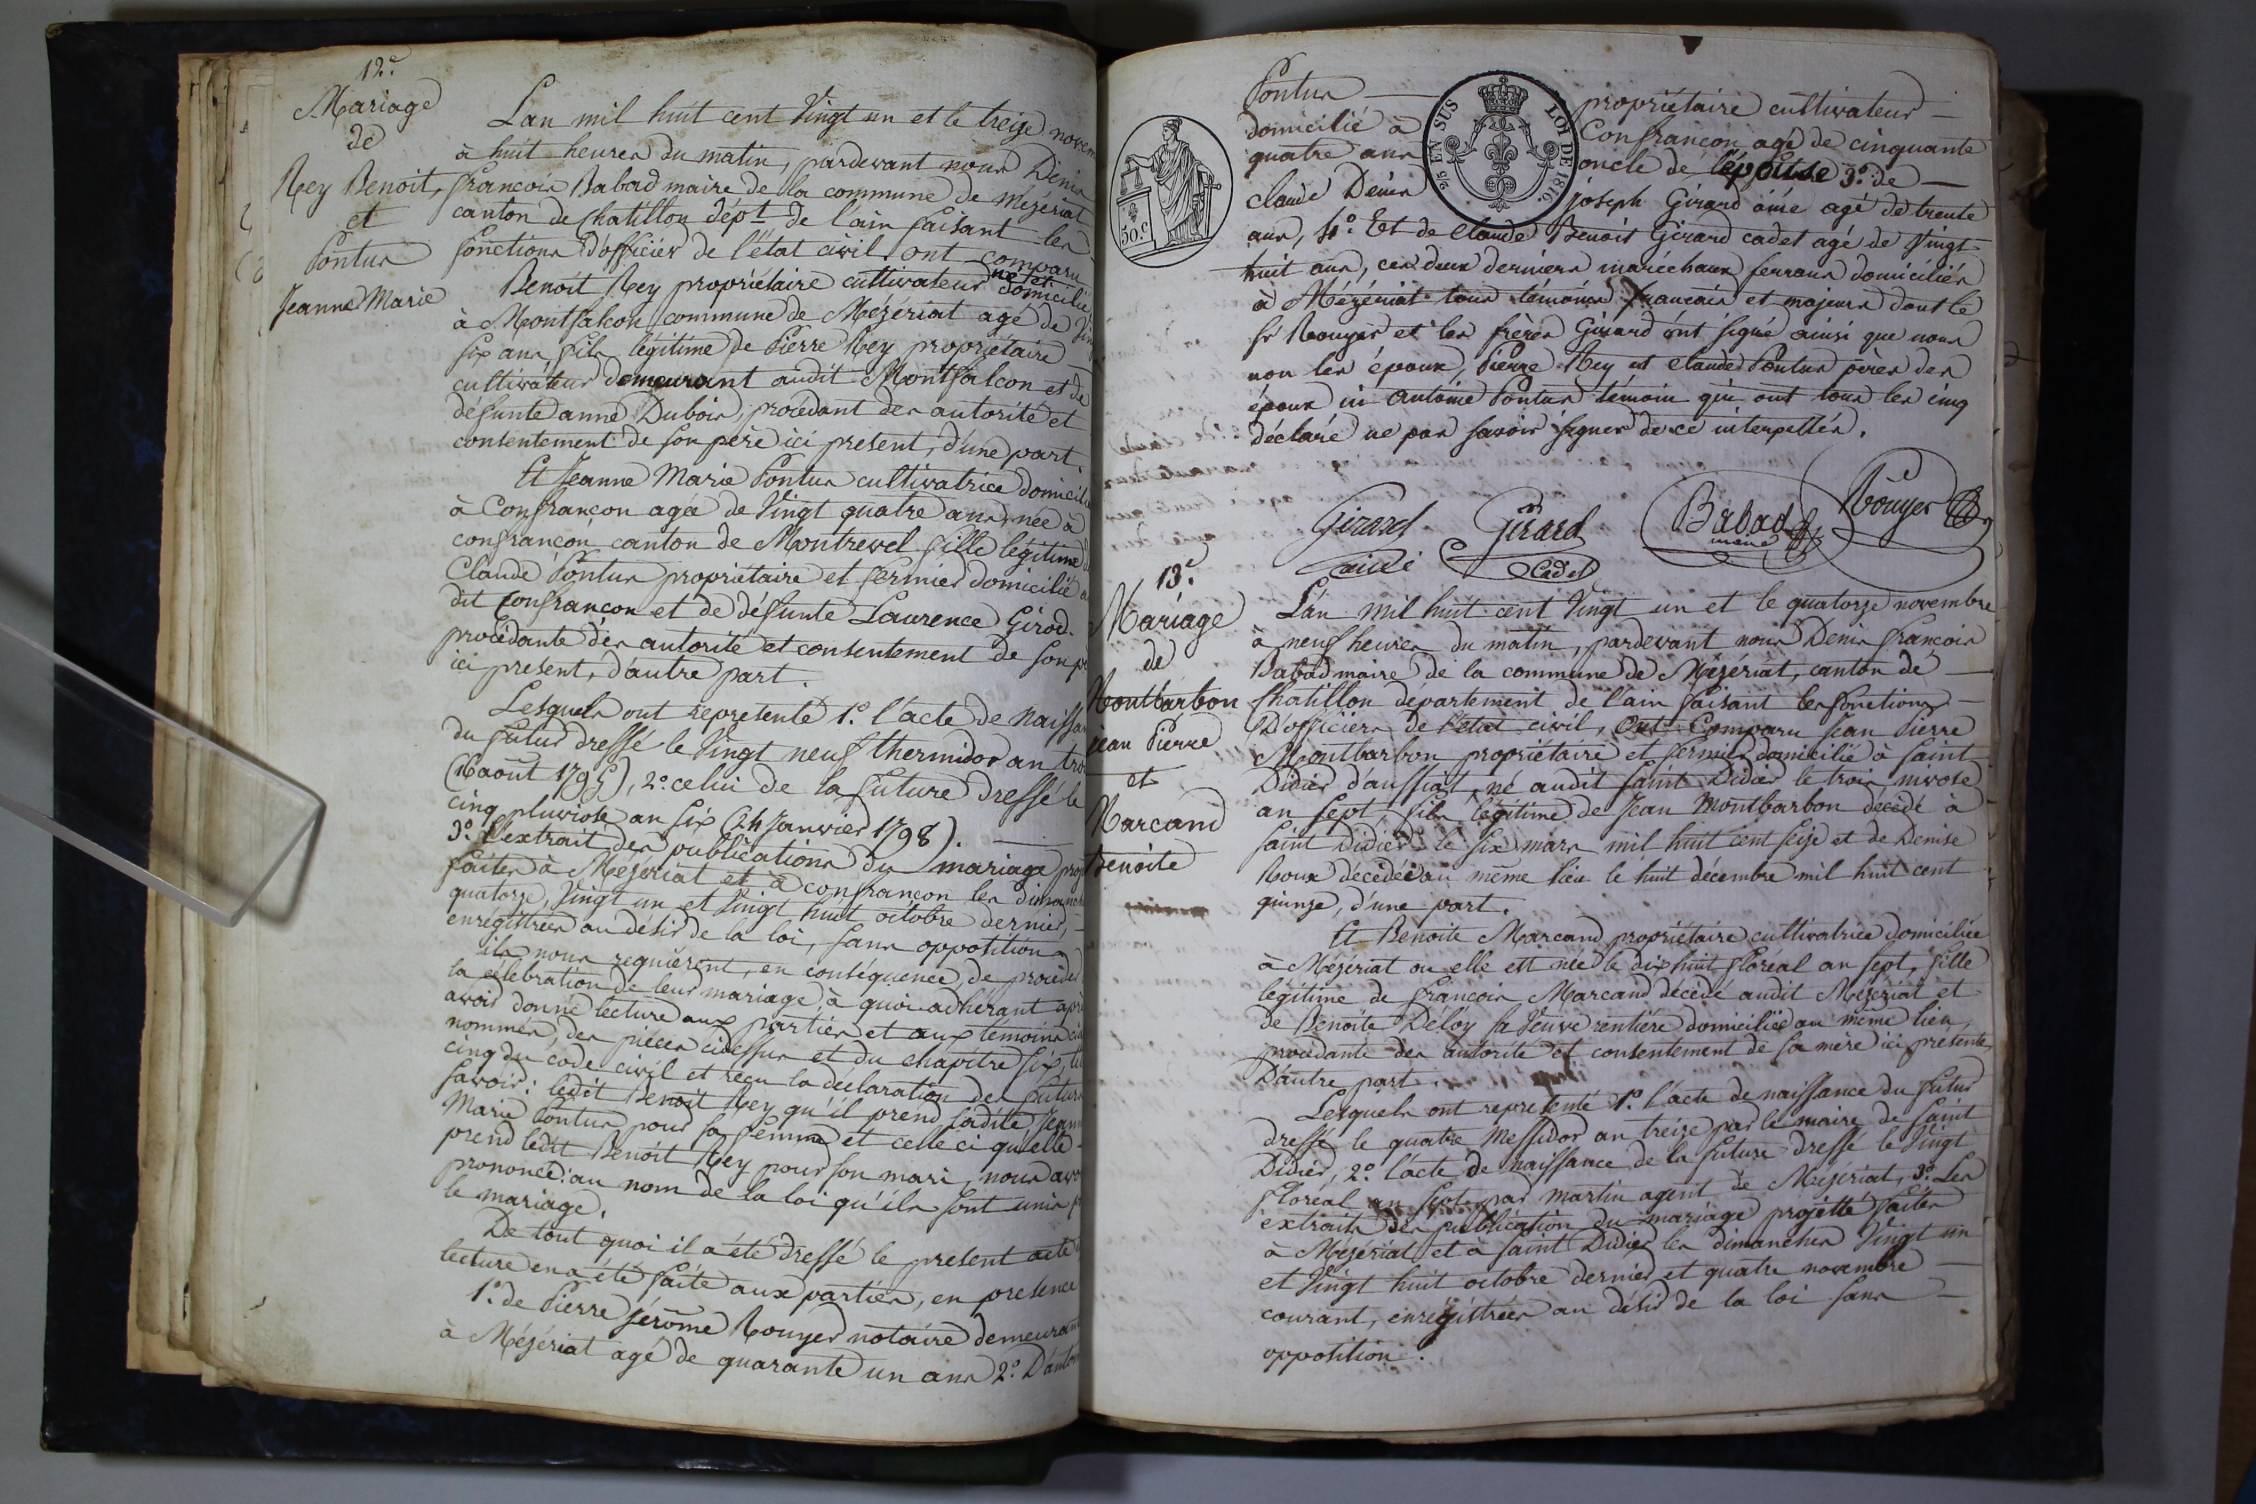 12.e
Mariage
de
Rey Benoit,
et
Pontus
Jeanne Marie
Lan mil huit cent Vingt un et le treize novem
à huit heures du matin, pardevant nous Denis
francois Babad maire de la commune de Mézériat
canton de Chatillon dépt. de l'ain faisant les
fonctions d'officier de l'état civil, ont comparu
Benoit Rey propriétaire cultivateur né et domicilié
à Montfalcon commune de Mézériat agé de Vin
six ans, fils légitime de Pierre Rey propriétaire
cultivateur demeurant audit Montfalcon et de
défunte anne Dubois, procédant des autorité et
consentement de son père ici present, d'une part.
Et Jeanne Marie Pontus cultivatrice domicili
à Confrançon agée de Vingt quatre ans, née à
confrançon canton de Montrevel fille légitime
Claude Pontus propriétaire et fermier domicilié
dit Confrançon et de défunte Laurence Girod.
procédante des autorité et consentement de son p
ici present, d'autre part.
Lesquels ont representé 1.o l'acte de naissan
du futur dressé le Vingt neuf thermidor an tro
(16 août 1795), 2.o celui de la future dressé le
cinq pluviose an six (24 Janvier 1798).
3.o l'extrait des publications du mariage proj
faites à Mézériat et à confrancon les dimanch
quatorze, Vingt un et Vingt huit octobre dernier,
enregistrées au désir de la loi, sans opposition
ils nous requièrent, en conséquence, de procéder
la célébration de leur mariage, à quoi adhérant aprè
avoir donné lecture aux parties et aux témoins ci
nommés, des pièces cidessus et du chapitre six, ti
cinq du code civil et reçu la déclaration des futurs
savoir: ledit Benoit Rey qu'il prend ladite Jeann
Marie Pontus pour sa femme et celle ci qu'elle
prend ledit Benoit Rey pour son mari, nous avo
prononcé au nom de la loi qu'ils sont unis p
le mariage.
De tout quoi il a été dressé le present acte
lecture en a été faite aux parties, en presence
1.o de Pierre Jérôme Rouyer notaire demeurant
à Mézériat agé de quarante un ans 2.o D'antoi
Pontus propriétaire cultivateur
domicilié à Confrancon agé de cinquante
quatre ans oncle de l'épouse 3.o de
claude Denis joseph Girard ainé agé de trente
ans, 4.o Et de Claude Benoit Girard cadet agé de Vingt
huit ans, ces deux derniers maréchaux ferrans domiciliés
à Mézériat tous témoins francais et majeurs dont le
sr Rouyer et les frères Girard ont signé ainsi que nous
non les époux, Pierre Rey et claude Pontus pères des
époux ni antoine Pontus témoin qui ont tous les cinq
déclaré ne pas savoir signer de ce interpellés.
50.c
2/5 EN SUS
LOI DE 1816.
Girard
ainé
Girard
Cadet
Babad
maire
Rouyer
13.e
Mariage
de
Montbarbon
jean Pierre
et
Marcand
Benoite
L'an mil huit cent Vingt un et le quatorze novembre
à neuf heures du matin, pardevant nous Denis francois
Babad maire de la commune de Mézeriat, canton de
Chatillon département de l'ain faisant les fonctions
D'officiers de l'état civil, Ont Comparu Jean Pierre
Montbarbon propriétaire et fermier domicilié à Saint
Didier d'aussiat, né audit saint Didier le trois nivose
an sept, fils légitime de Jean Montbarbon décédé à
Saint Didier le six mars mil huit cent seize et de Denise
Roux décédée au même lieu le huit décembre mil huit cent
quinze, d'une part.
Et Benoite Marcand propriétaire cultivatrice domiciliée
à Mézériat ou elle est née le dix huit floréal an sept, fille
légitime de francois Marcand décédé audit Mézériat et
de Benoite Déloy sa Veuve rentière domiciliée au même lieu
procédante des autorité et consentement de sa mere ici présente
D'autre part.
Lesquels ont representé 1.o L'acte de naissance du futur
dressé le quatre Messidor an treize par le maire de Saint
Didier, 2.o L'acte de naissance de la future dressé le Vingt
floréal an sept par martin agent de Mézériat, 3.o Les
extraits des publication du mariage projetté faites
à Mezériat et à saint Didier les dimanches Vingt un
et Vingt huit octobre dernier et quatre novembre
courant, enrégistrées au désir de la loi sans
opposition.